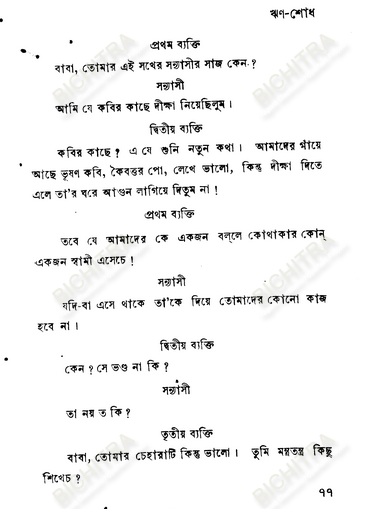 ঋণ-শোধ
প্রথম ব্যক্তি
বাবা, তোমার এই সখের সন্ন্যাসীর সাজ কেন ?
সন্ন্যাসী
আমি যে কবির কাছে দীক্ষা নিয়েছিলুম।
দ্বিতীয় ব্যক্তি
কবির কাছে ? এ যে শুনি নতুন কথা। আমাদের গাঁয়ে
আছে ভূষণ কবি, কৈবত্তর পো, লেখে ভালো, কিন্তু দীক্ষা দিতে
এলে তা'র ঘরে আগুন লাগিয়ে দিতুম না !
প্রথম ব্যক্তি
তবে যে আমাদের কে একজন বল্‌লে কোথাকার কোন্
একজন স্বামী এসেচে !
সন্ন্যাসী
যদি-বা এসে থাকে তা'কে দিয়ে তোমাদের কোনো কাজ
হবে না।
দ্বিতীয় ব্যক্তি
কেন ? সে ভণ্ড না কি ?
সন্ন্যাসী
তা নয় ত কি ?
তৃতীয় ব্যক্তি
বাবা, তোমার চেহারাটি কিন্তু ভালো। তুমি মন্ত্রতন্ত্র কিছু
শিখেচ ?
৭৭
BICHITRA
BICHITRA
BICHITRA
BICHITRA
BICHITRA
BICHITRA